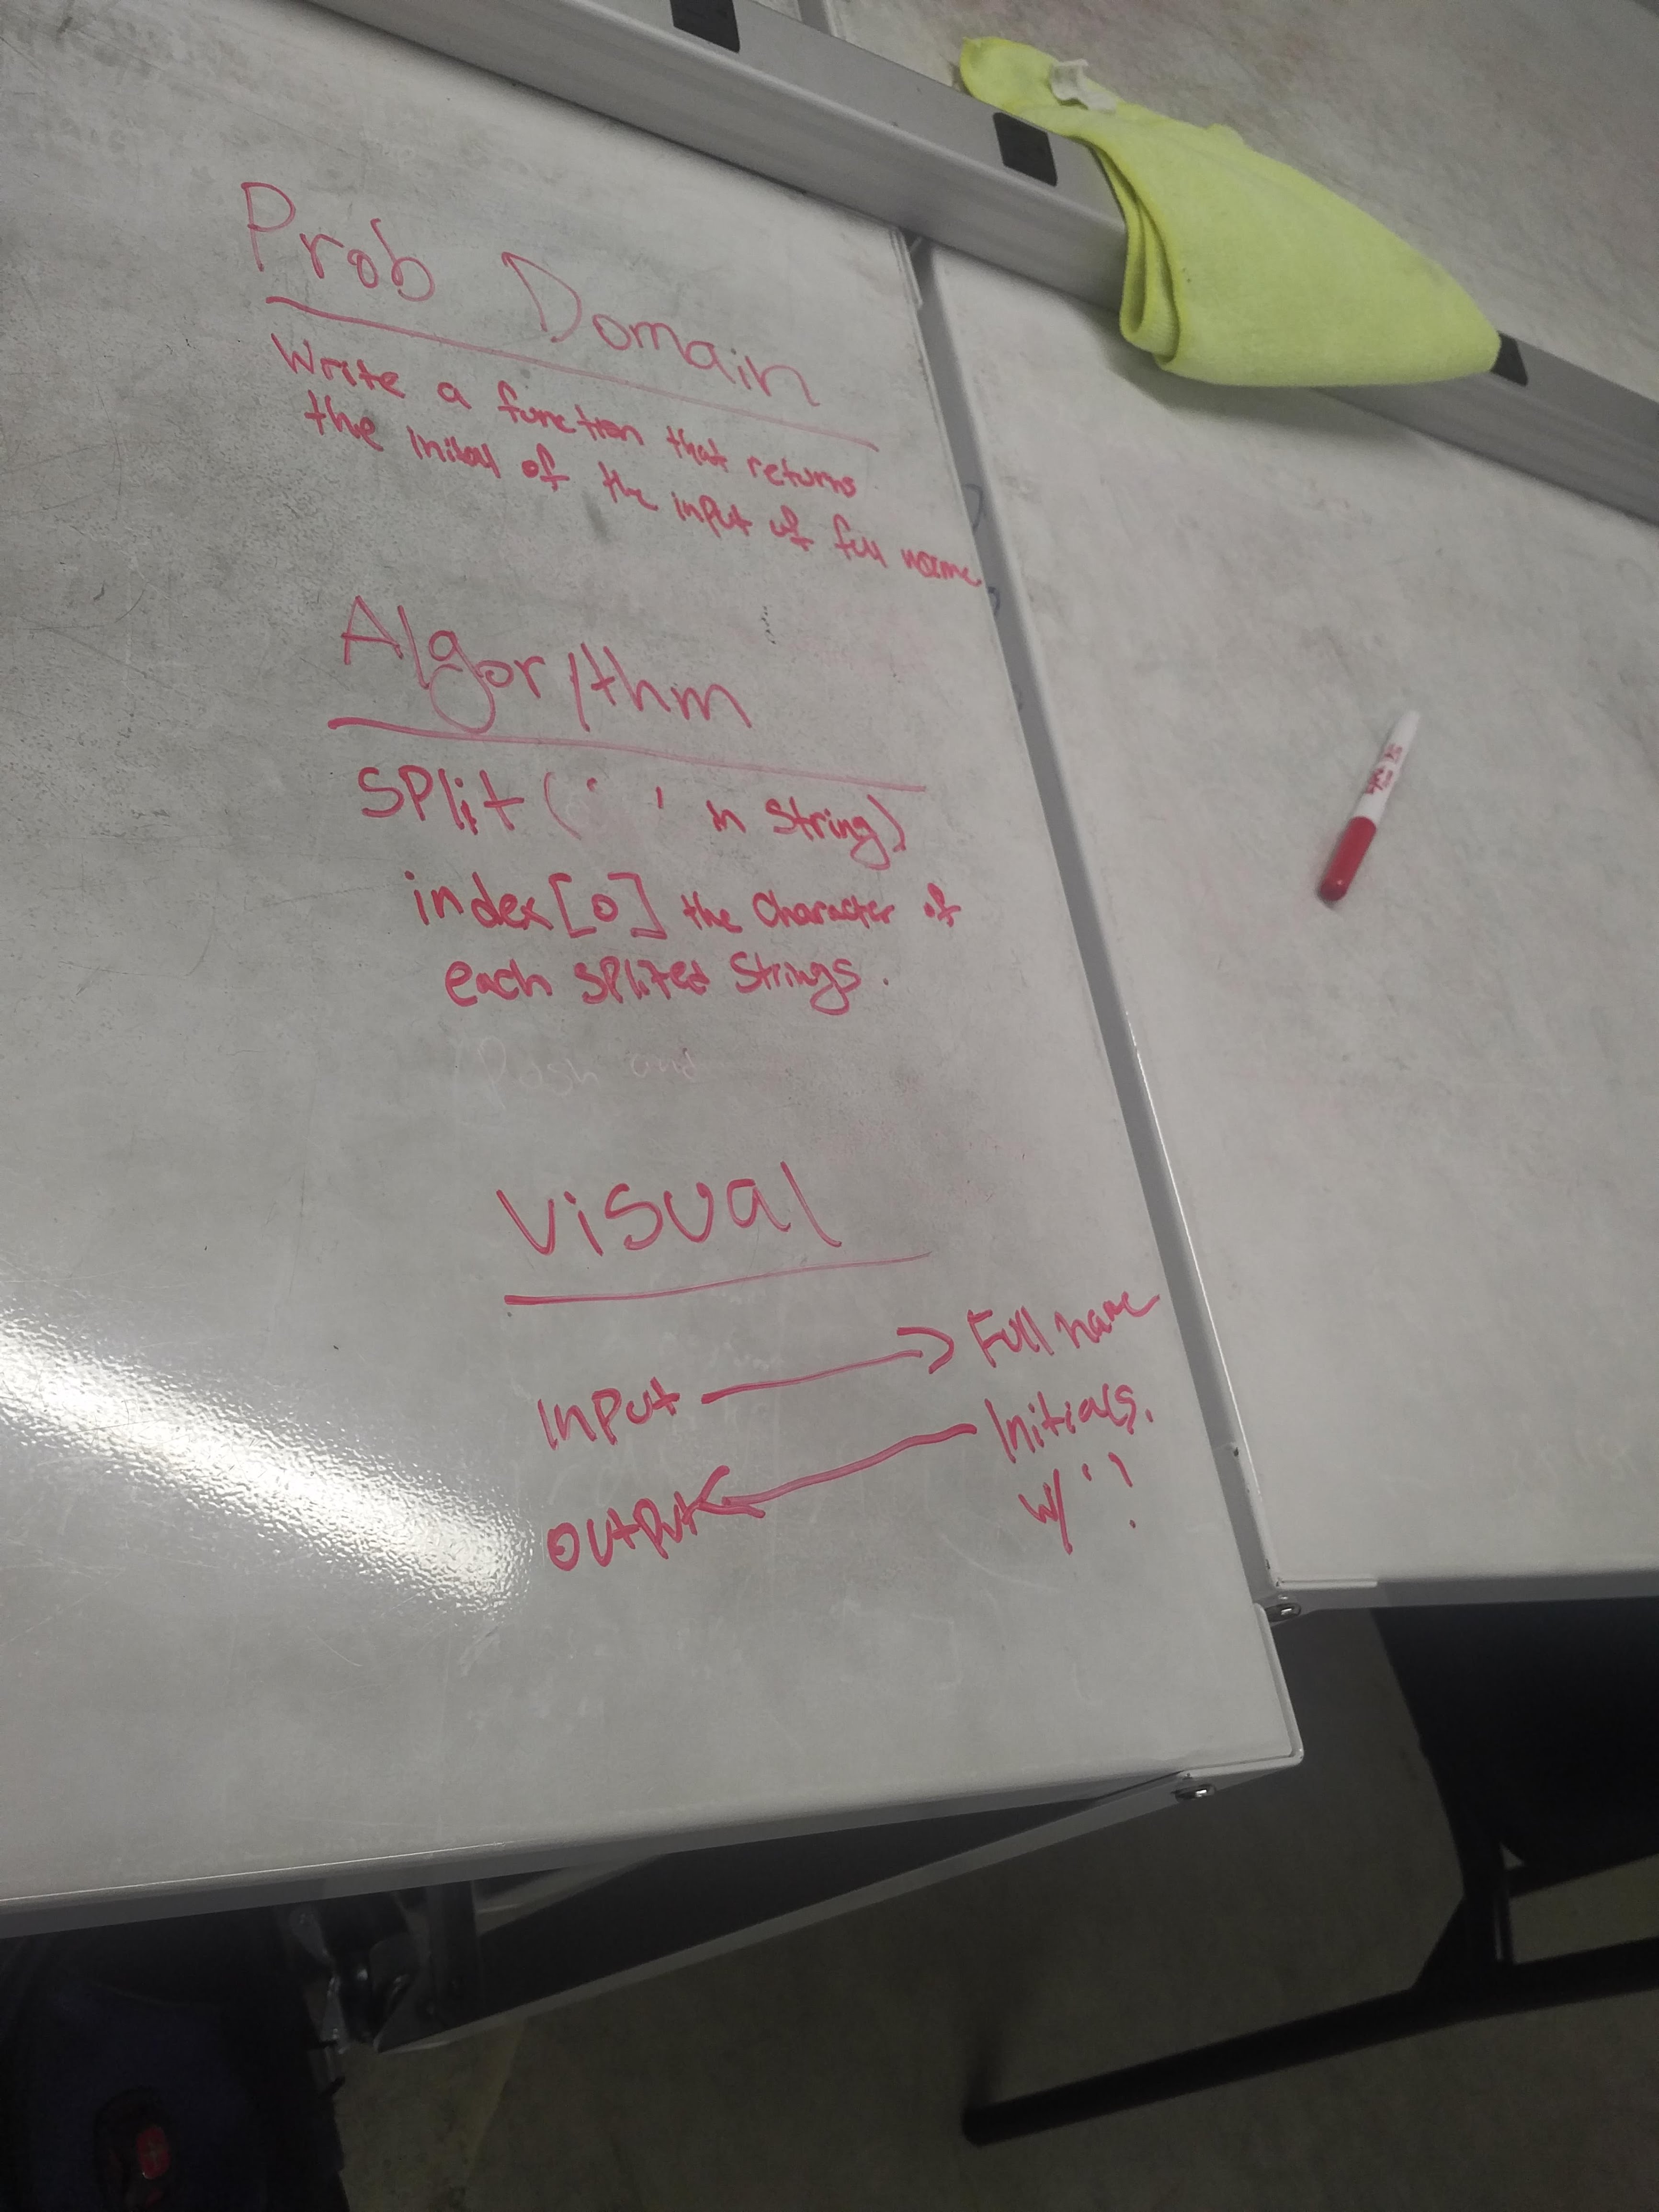 Prob Domain
Write a function that returns
the inital of the input of full name
Algorithm
SPlit (' ' in String)
index[0] the Character of
each splited Strings.
Push and
Visual
Input → Full name
Output ← Initials.
w/ '.'